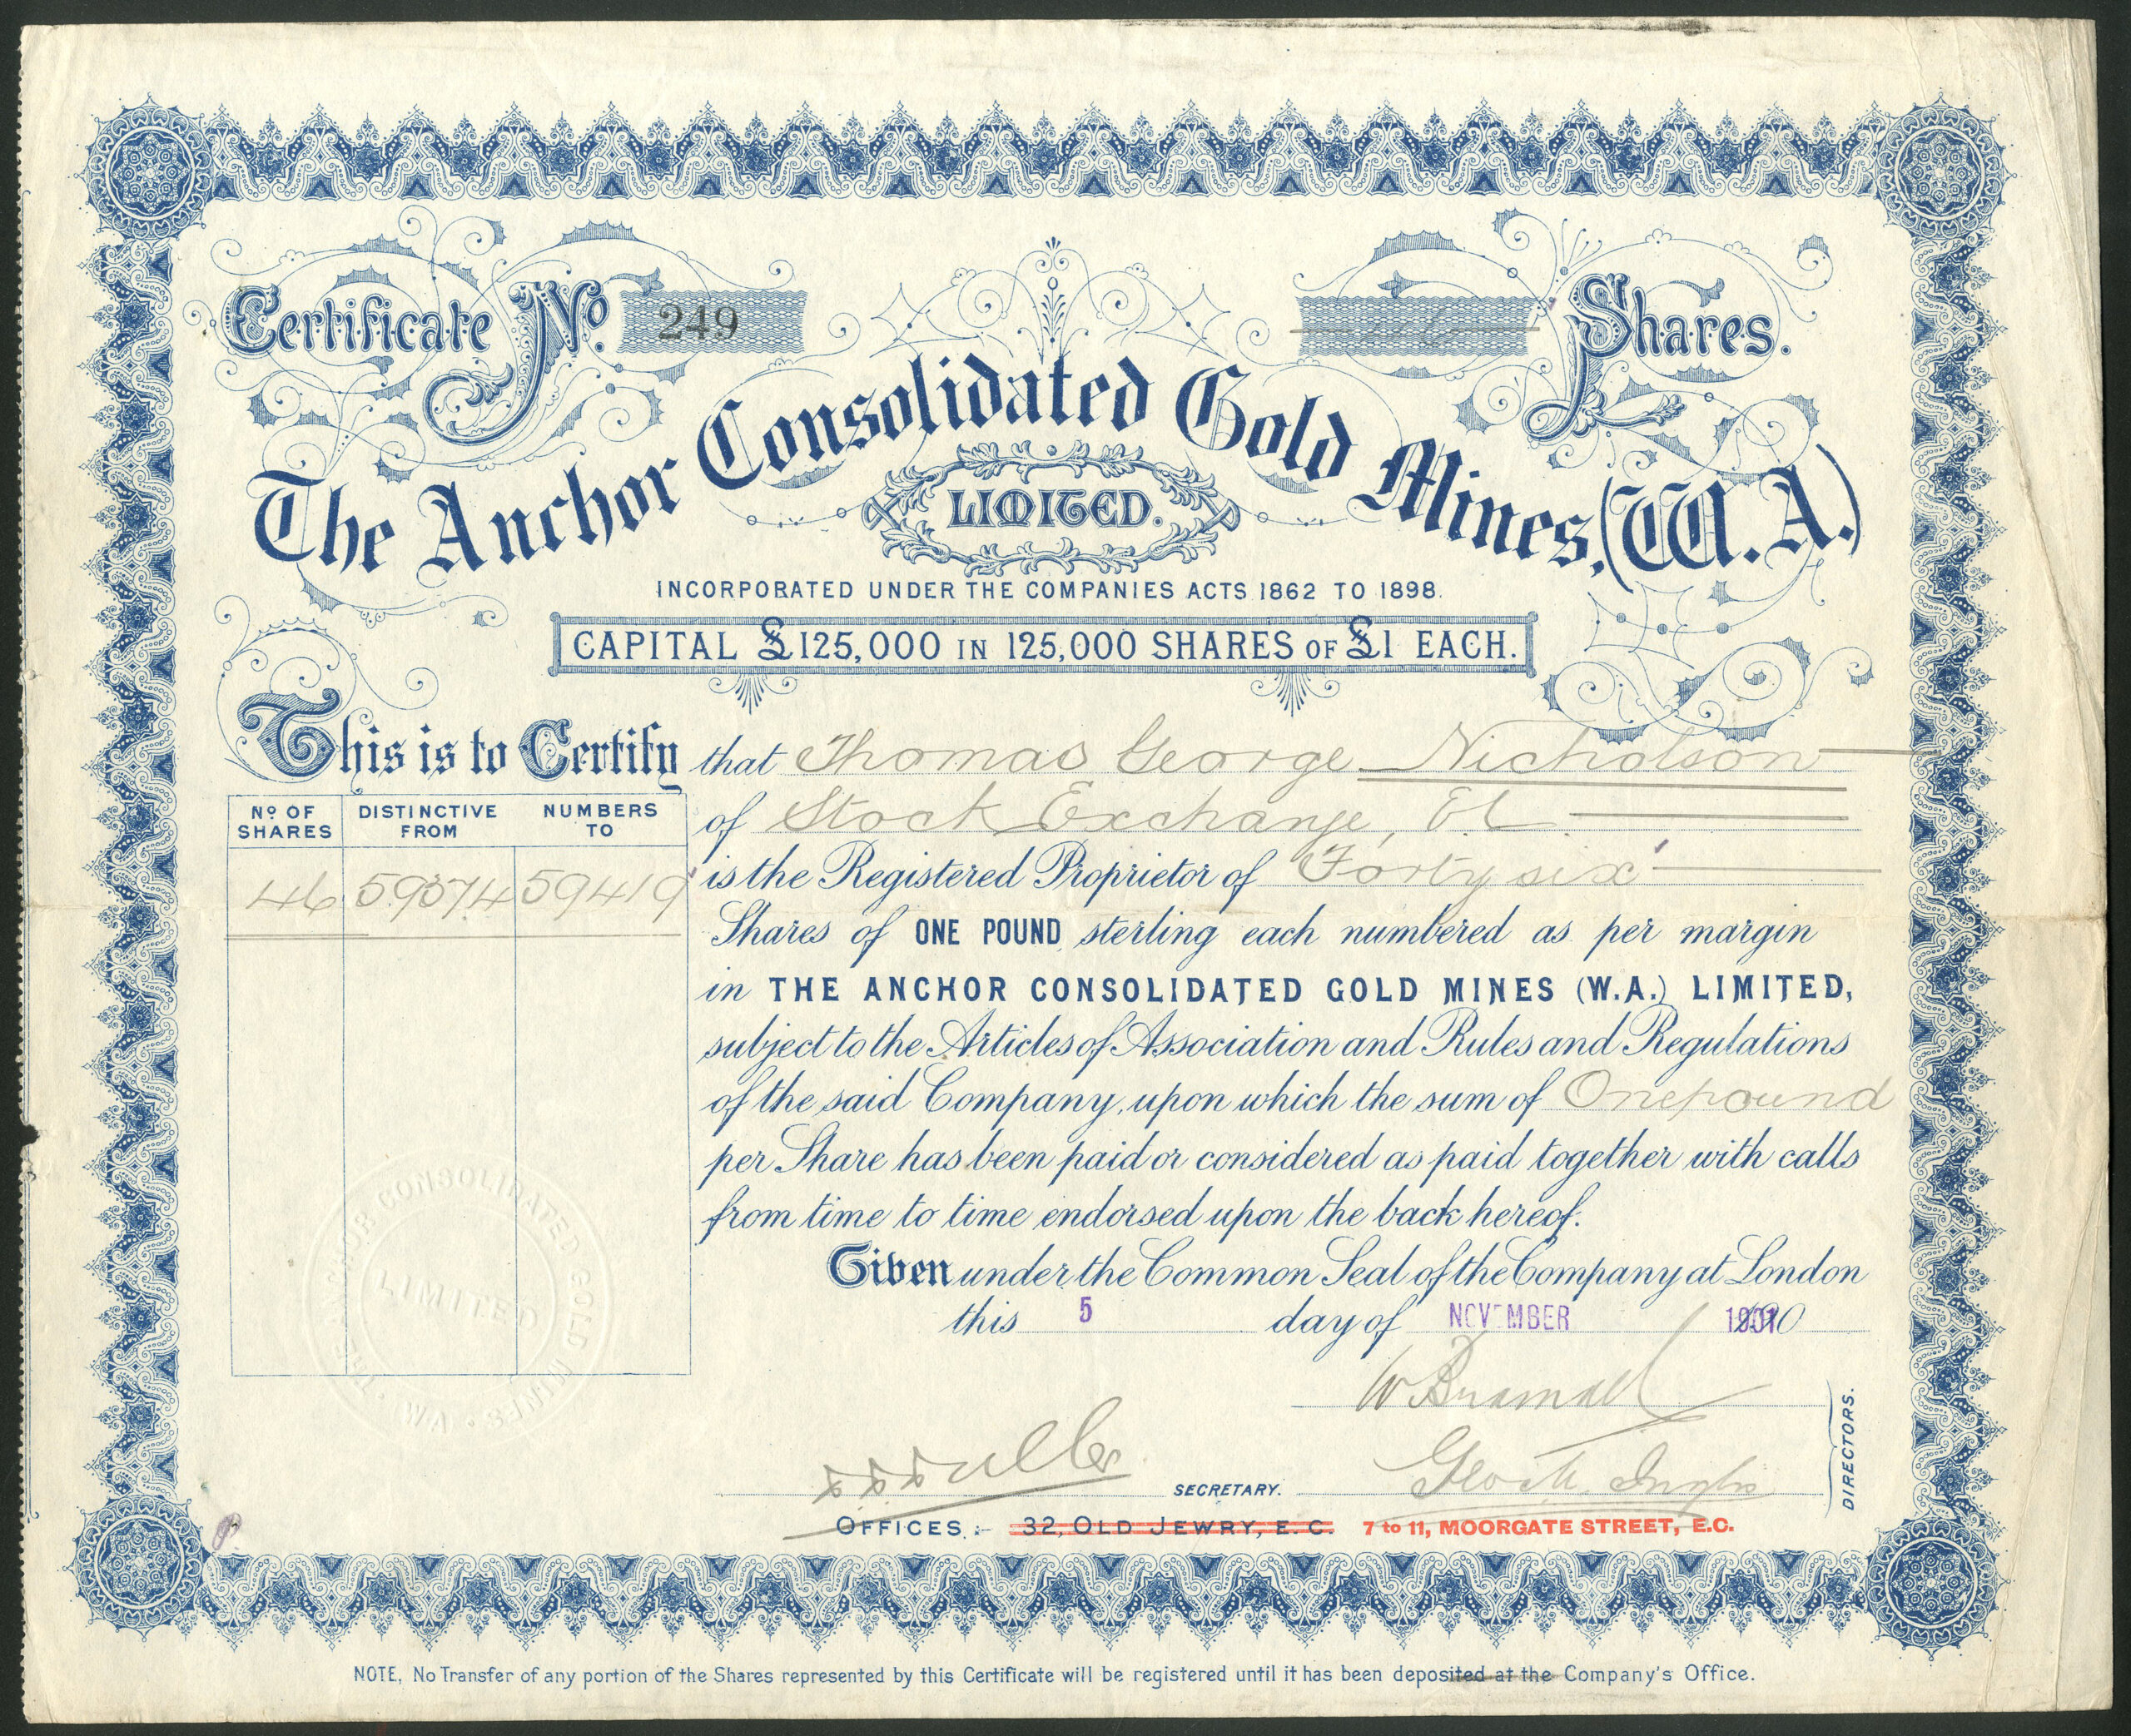 Certificate No. 249
46 Shares.
The Anchor Consolidated Gold Mines, (W.A.)
LIMITED.
INCORPORATED UNDER THE COMPANIES ACTS 1862 TO 1898.
CAPITAL £125,000 IN 125,000 SHARES OF £1 EACH.
This is to Certify that Thomas George Nicholson
of Stock Exchange, E.C.
is the Registered Proprietor of Forty six
Shares of ONE POUND sterling each numbered as per margin
in THE ANCHOR CONSOLIDATED GOLD MINES (W.A.) LIMITED,
subject to the Articles of Association and Rules and Regulations
of the said Company, upon which the sum of One pound
per Share has been paid or considered as paid together with calls
from time to time endorsed upon the back hereof.
Given under the Common Seal of the Company at London
this 5 day of NOVEMBER 1901
No OF SHARES DISTINCTIVE FROM NUMBERS TO
46 59374 59419
THE ANCHOR CONSOLIDATED GOLD MINES · W.A ·
LIMITED
W Bramall
SECRETARY.
DIRECTORS.
OFFICES:- 32, OLD JEWRY, E.C. 7 to 11, MOORGATE STREET, E.C.
NOTE, No Transfer of any portion of the Shares represented by this Certificate will be registered until it has been deposited at the Company's Office.